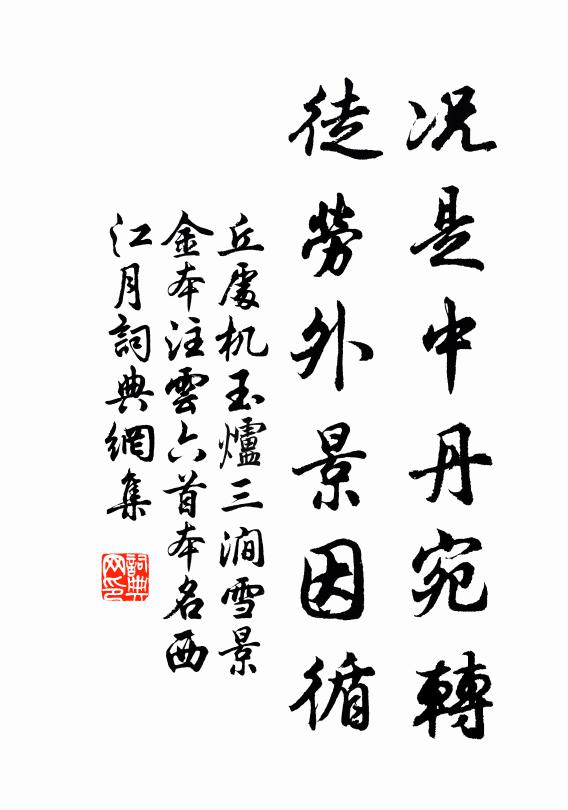 况是中丹宛轉
徒勞外景因循
丘處机玉爐三澗雪景
金本注雲六首本名西
江月詞典網集
詞典網印